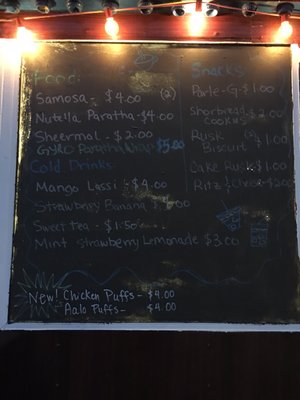 Food
Samosa - $4.00 (2)
Nutella Paratha - $4.00
Sheermal - $2.00
Gyro Paratha Wrap $5.00
Cold Drinks
Mango Lassi - $4.00
Strawberry Banana
Sweet tea - $1.50
Mint Strawberry Lemonade $3.00
Snacks
Parle-G - $1.00
Shortbread $2.00
Cookies
Rusk
Biscuit $1.00
Cake Rusk - $1.00
Ritz
New! Chicken Puffs - $4.00
Aalo Puffs - $4.00